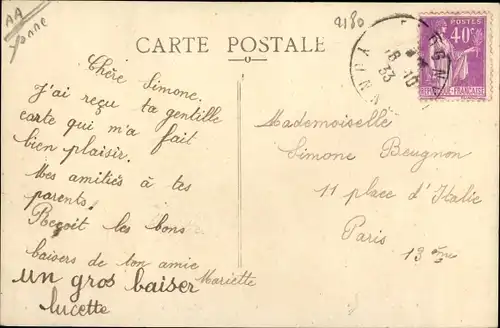 AA
Yonne
2180
CARTE POSTALE
POSTES
40c
REPUBLIQUE FRANÇAISE
18 - 10
33
YONNE
Chère Simone
J'ai reçu ta gentille
carte qui m'a fait
bien plaisir.
Mes amitiés à tes
parents.
Reçoit les bons
baisers de ton amie
Mariette
un gros baiser
lucette
Mademoiselle
Simone Beugnon
11 place d'Italie
Paris
13ème